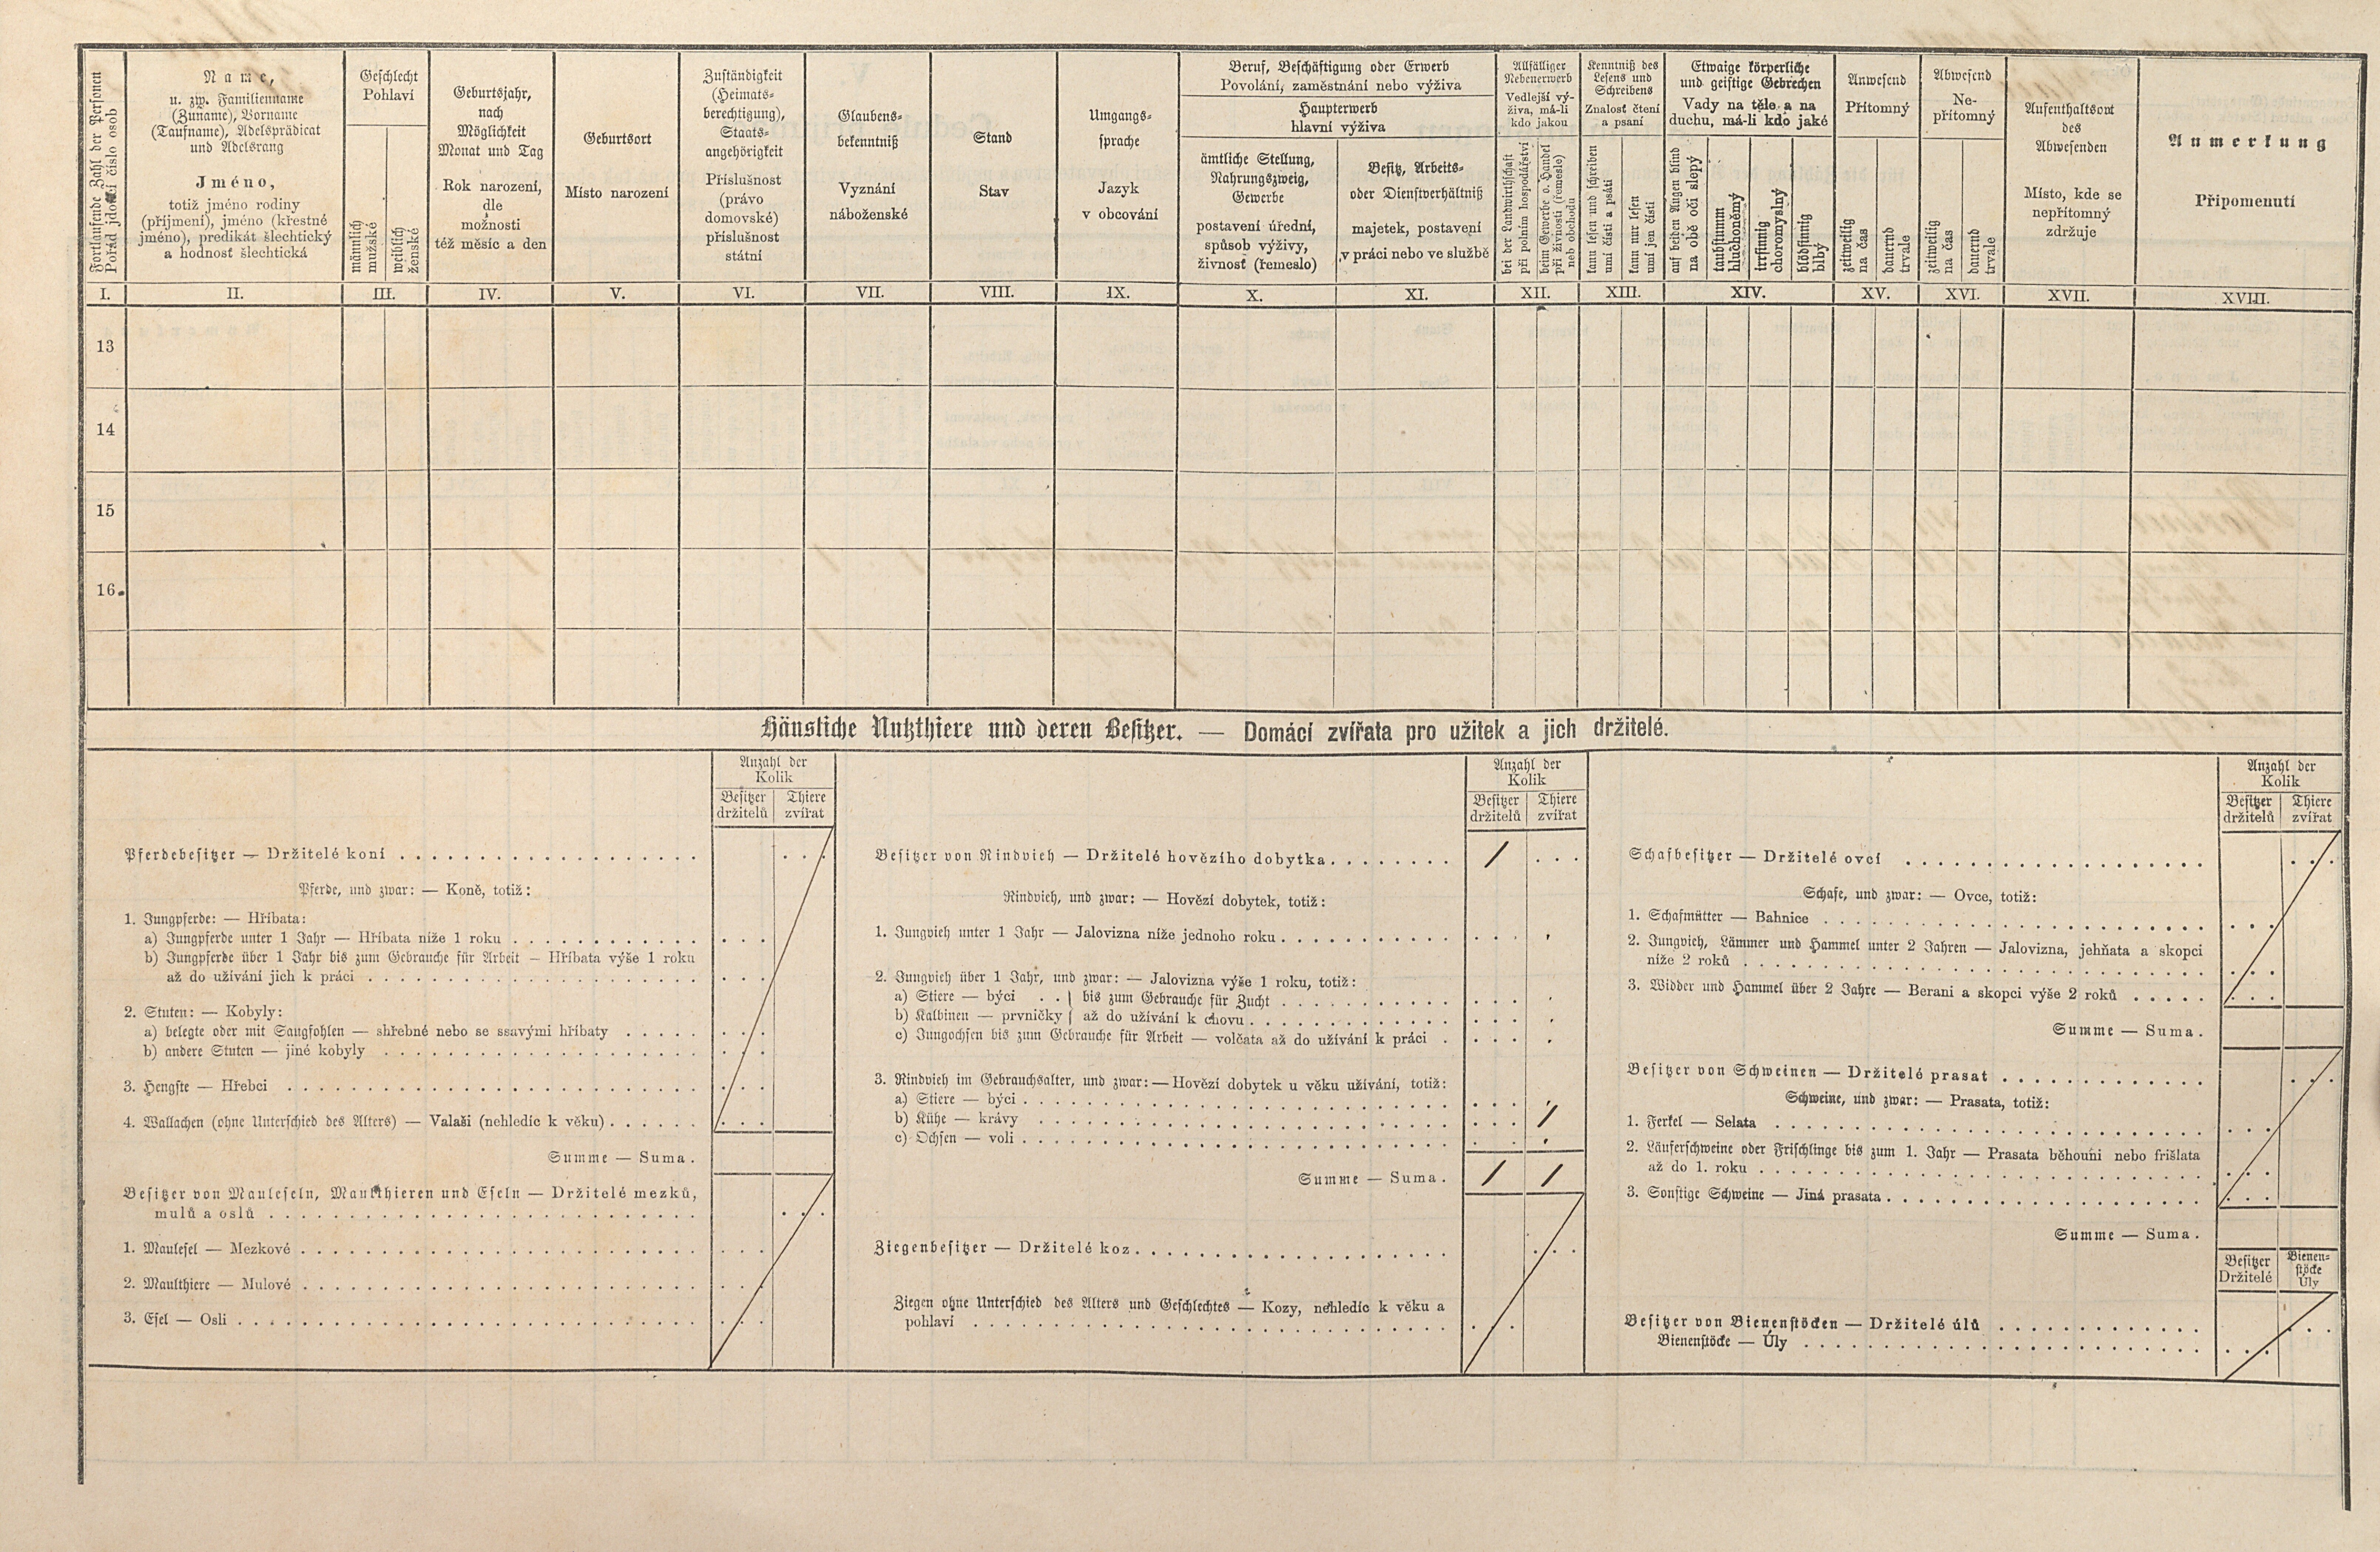 Fortlaufende Zahl der Personen
Pořád jdoucí číslo osob
Name,
u. zw. Familienname
(Zuname), Vorname
(Taufname), Adelsprädicat
und Adelsrang
Jméno,
totiž jméno rodiny
(příjmení), jméno (křestné
jméno), predikát šlechtický
a hodnosť šlechtická
Geschlecht
Pohlaví
männlich
mužské
weiblich
ženské
Geburtsjahr,
nach
Möglichkeit
Monat und Tag
Rok narození,
dle
možnosti
též měsíc a den
Geburtsort
Místo narození
Zuständigkeit
(Heimats-
berechtigung),
Staats-
angehörigkeit
Příslušnost
(právo
domovské)
příslušnost
státní
Glaubens-
bekenntniß
Vyznání
náboženské
Stand
Stav
Umgangs-
sprache
Jazyk
v obcování
Beruf, Beschäftigung oder Erwerb
Povolání, zaměstnání nebo výživa
Haupterwerb
hlavní výživa
ämtliche Stellung,
Nahrungszweig,
Gewerbe
postavení úřední,
spůsob výživy,
živnosť (řemeslo)
Besitz, Arbeits-
oder Dienstverhältniß
majetek, postavení
v práci nebo ve službě
Allfälliger
Nebenerwerb
Vedlejší vý-
živa, má-li
kdo jakou
bei der Landwirthschaft
při polním hospodářství
beim Gewerbe o. Handel
při živnosti (řemesle)
neb obchodu
Kenntniß des
Lesens und
Schreibens
Znalosť čtení
a psaní
kann lesen und schreiben
umí čísti a psáti
kann nur lesen
umí jen čísti
Etwaige körperliche
und geistige Gebrechen
Vady na těle a na
duchu, má-li kdo jaké
auf beiden Augen blind
na obě oči slepý
taubstumm
hluchoněmý
irrsinnig
choromyslný
blödsinnig
blbý
Anwesend
Přítomný
zeitweilig
na čas
dauernd
trvale
Abwesend
Ne-
přítomný
zeitweilig
na čas
dauernd
trvale
Aufenthaltsort
des
Abwesenden
Místo, kde se
nepřítomný
zdržuje
Anmerkung
Připomenutí
I. II. III. IV. V. VI. VII. VIII. IX. X. XI. XII. XIII. XIV. XV. XVI. XVII. XVIII.
13
14
15
16
Häusliche Nutzthiere und deren Besitzer. — Domácí zvířata pro užitek a jich držitelé.
Anzahl der
Kolik
Besitzer Thiere
držitelů zvířat
Pferdebesitzer — Držitelé koní
Pferde, und zwar: — Koně, totiž:
1. Jungpferde: — Hříbata:
a) Jungpferde unter 1 Jahr — Hříbata níže 1 roku
b) Jungpferde über 1 Jahr bis zum Gebrauche für Arbeit — Hříbata výše 1 roku
až do užívání jich k práci
2. Stuten: — Kobyly:
a) belegte oder mit Saugfohlen — shřebné nebo se ssavými hříbaty
b) andere Stuten — jiné kobyly
3. Hengste — Hřebci
4. Wallachen (ohne Unterschied des Alters) — Valaši (nehledíc k věku)
Summe — Suma.
Besitzer von Mauleseln, Maulthieren und Eseln — Držitelé mezků,
mulů a oslů
1. Maulesel — Mezkové
2. Maulthiere — Mulové
3. Esel — Osli
Anzahl der
Kolik
Besitzer Thiere
držitelů zvířat
Besitzer von Rindvieh — Držitelé hovězího dobytka 1
Rindvieh, und zwar: — Hovězí dobytek, totiž:
1. Jungvieh unter 1 Jahr — Jalovizna níže jednoho roku
2. Jungvieh über 1 Jahr, und zwar: — Jalovizna výše 1 roku, totiž:
a) Stiere — býci . . } bis zum Gebrauche für Zucht
b) Kalbinen — prvničky } až do užívání k chovu
c) Jungochsen bis zum Gebrauche für Arbeit — volčata až do užívání k práci
3. Rindvieh im Gebrauchsalter, und zwar: — Hovězí dobytek u věku užívání, totiž:
a) Stiere — býci
b) Kühe — krávy 1
c) Ochsen — voli
Summe — Suma. 1 1
Ziegenbesitzer — Držitelé koz
Ziegen ohne Unterschied des Alters und Geschlechtes — Kozy, nehledíc k věku a
pohlaví
Anzahl der
Kolik
Besitzer Thiere
držitelů zvířat
Schafbesitzer — Držitelé ovcí
Schafe, und zwar: — Ovce, totiž:
1. Schafmütter — Bahnice
2. Jungvieh, Lämmer und Hammel unter 2 Jahren — Jalovizna, jehňata a skopci
níže 2 roků
3. Widder und Hammel über 2 Jahre — Berani a skopci výše 2 roků
Summe — Suma.
Besitzer von Schweinen — Držitelé prasat
Schweine, und zwar: — Prasata, totiž:
1. Ferkel — Selata
2. Läuferschweine oder Frischlinge bis zum 1. Jahr — Prasata běhouni nebo frišlata
až do 1. roku
3. Sonstige Schweine — Jiná prasata
Summe — Suma.
Besitzer
Držitelé
Bienen-
stöcke
Úly
Besitzer von Bienenstöcken — Držitelé úlů
Bienenstöcke — Úly